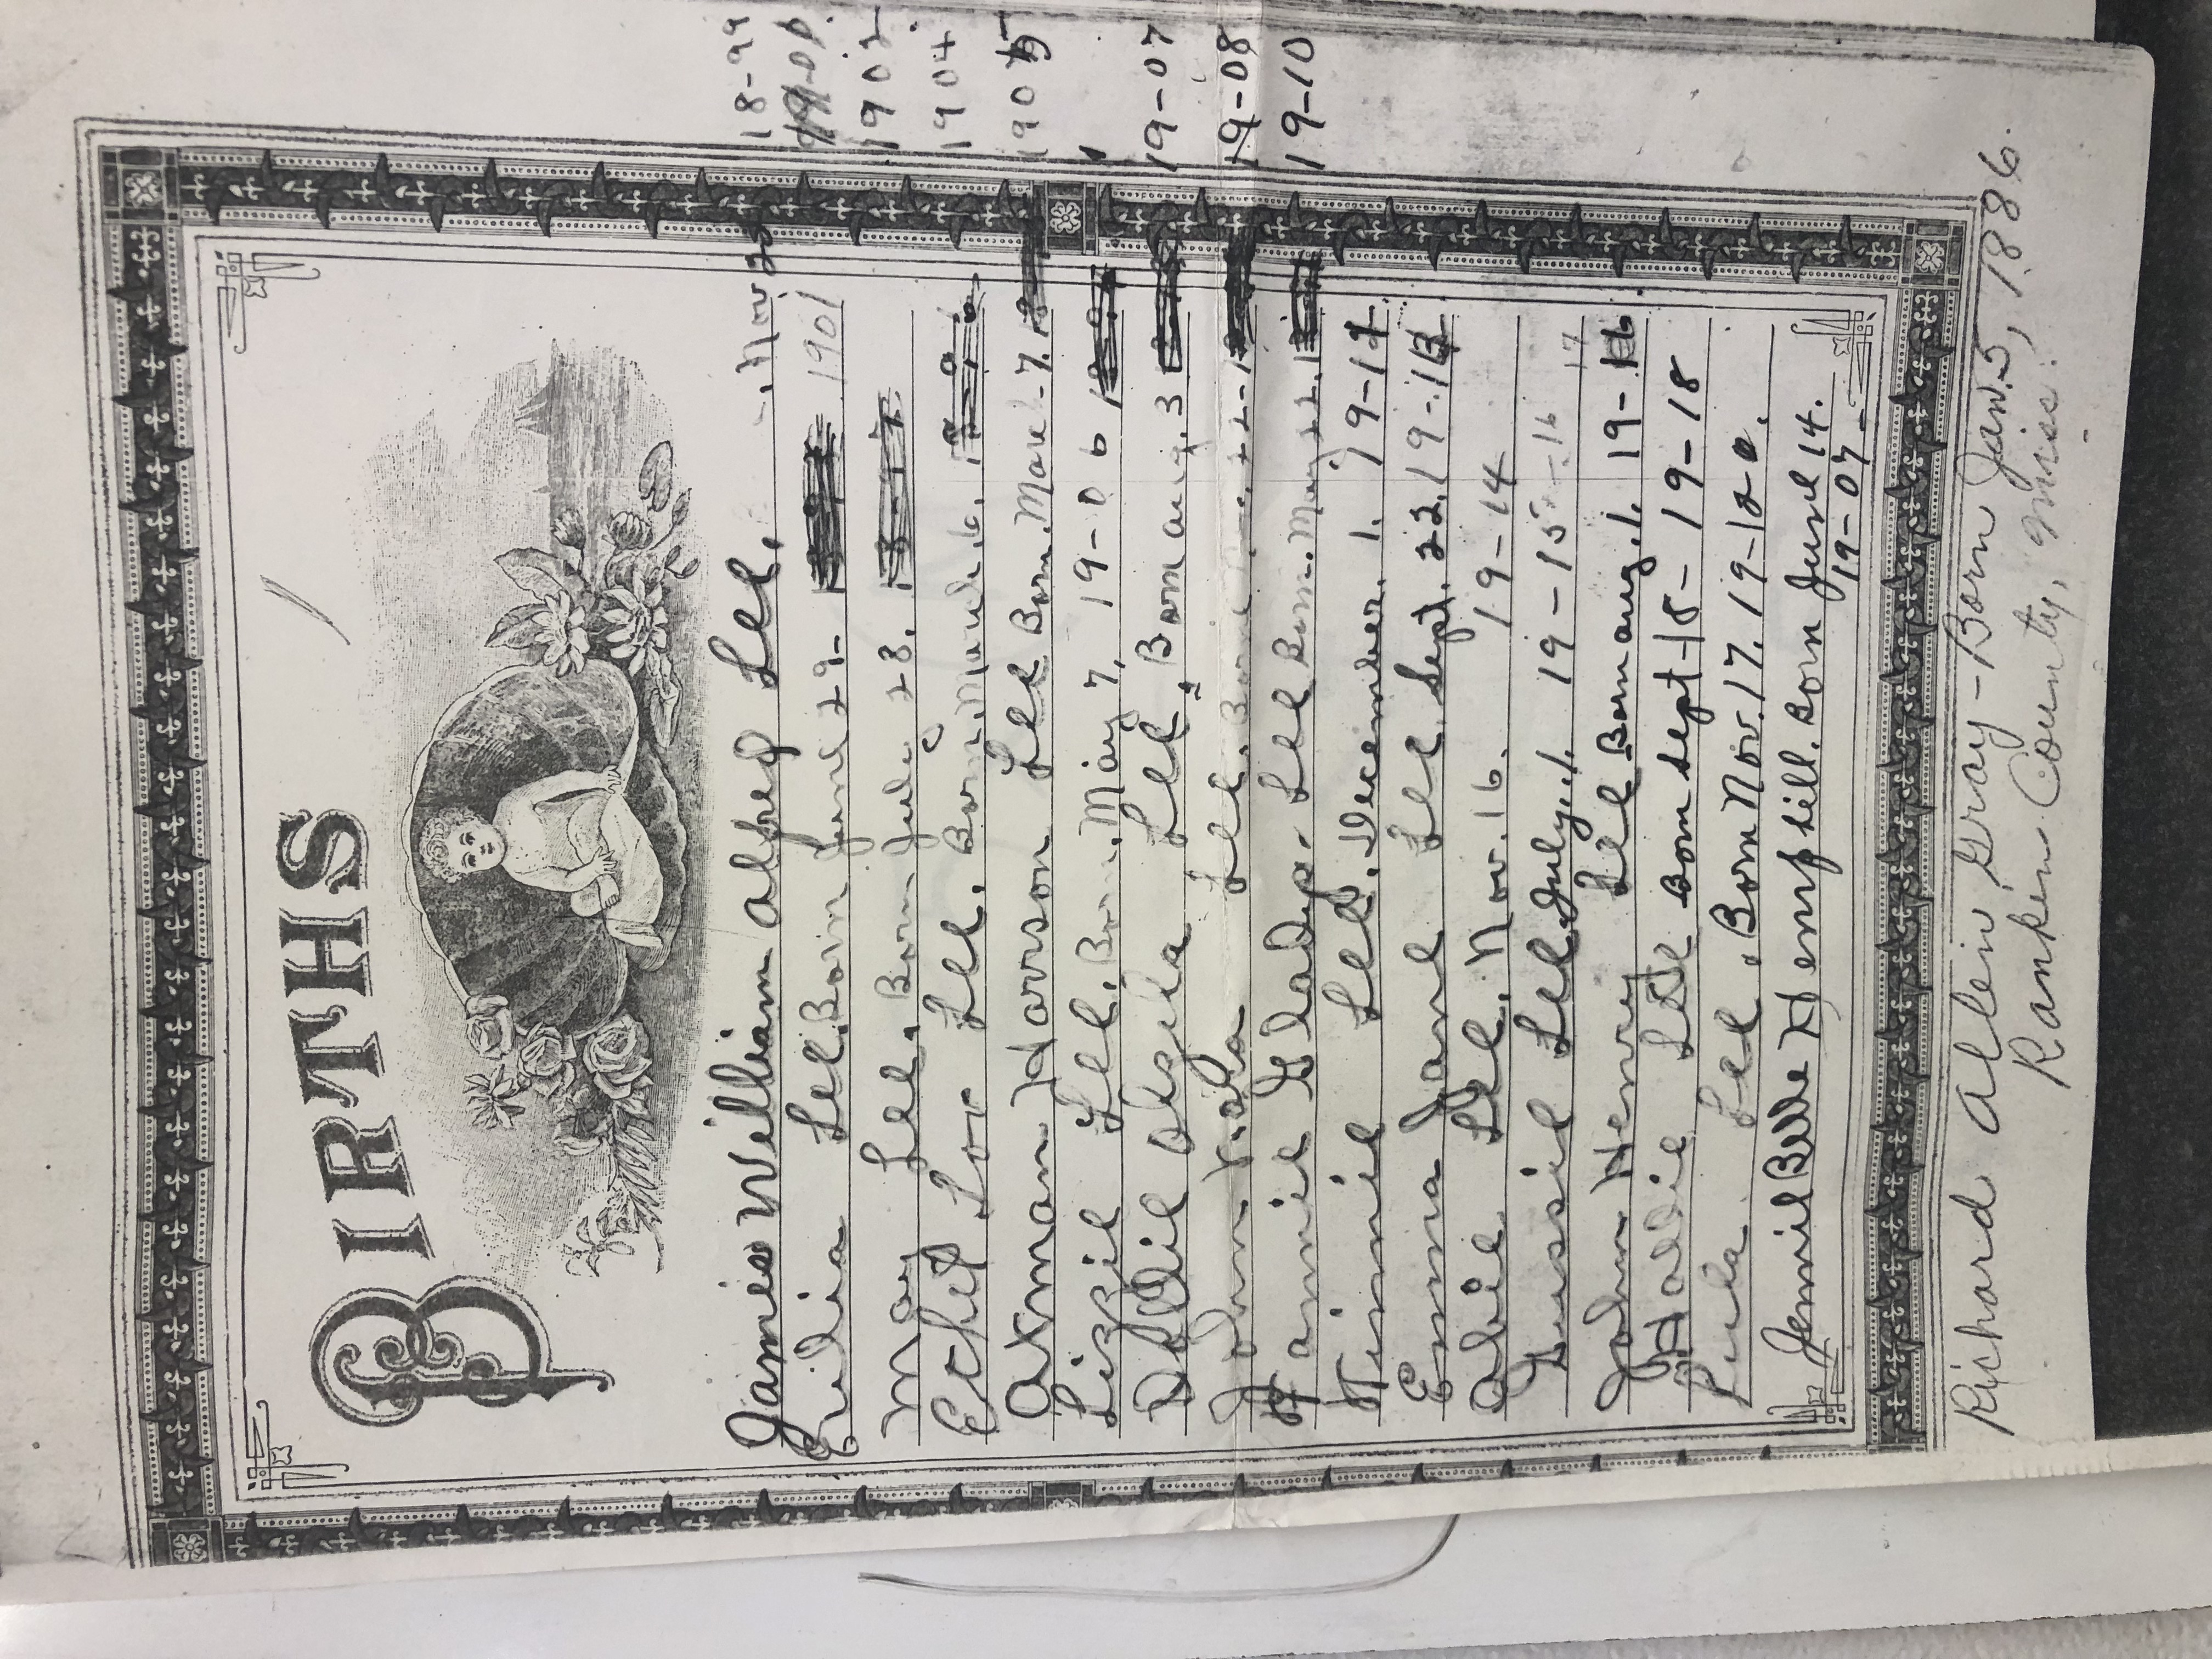 BIRTHS
James William Alfred Lee. Nov 18-99
Eulia Lee Born June 29- 1901
May Lee. Born July 28. 1902
Ethel Lor Lee. Born March. 6. 1904
Axman Harrson Lee Born. March - 7. 1905
Lizzie Lee. Born. May 7, 19-06
Dollie Ozela Lee. Born aug. 3 19-07
John Lee. Born 22- 19-08
Fannie Gladys. Lee Born. May 22. 19-10
Winnie Lee. December. 1. 19-11
Emma Jane Lee Sept. 22. 19-
abie Lee. Nov. 16. 19-14
Gussie Lee July. 1. 19-15 -16 17
John Henry Lee Born aug. 1. 19-16
Hallie Lee Born Sept-18- 19-18
Lula Lee. Born Nov. 17. 19-
Jennie Belle Hemphill. Born June 14.
19-07-
Richard Allein Gray - Born Jan. 5, 1886.
Rankin County, Miss.